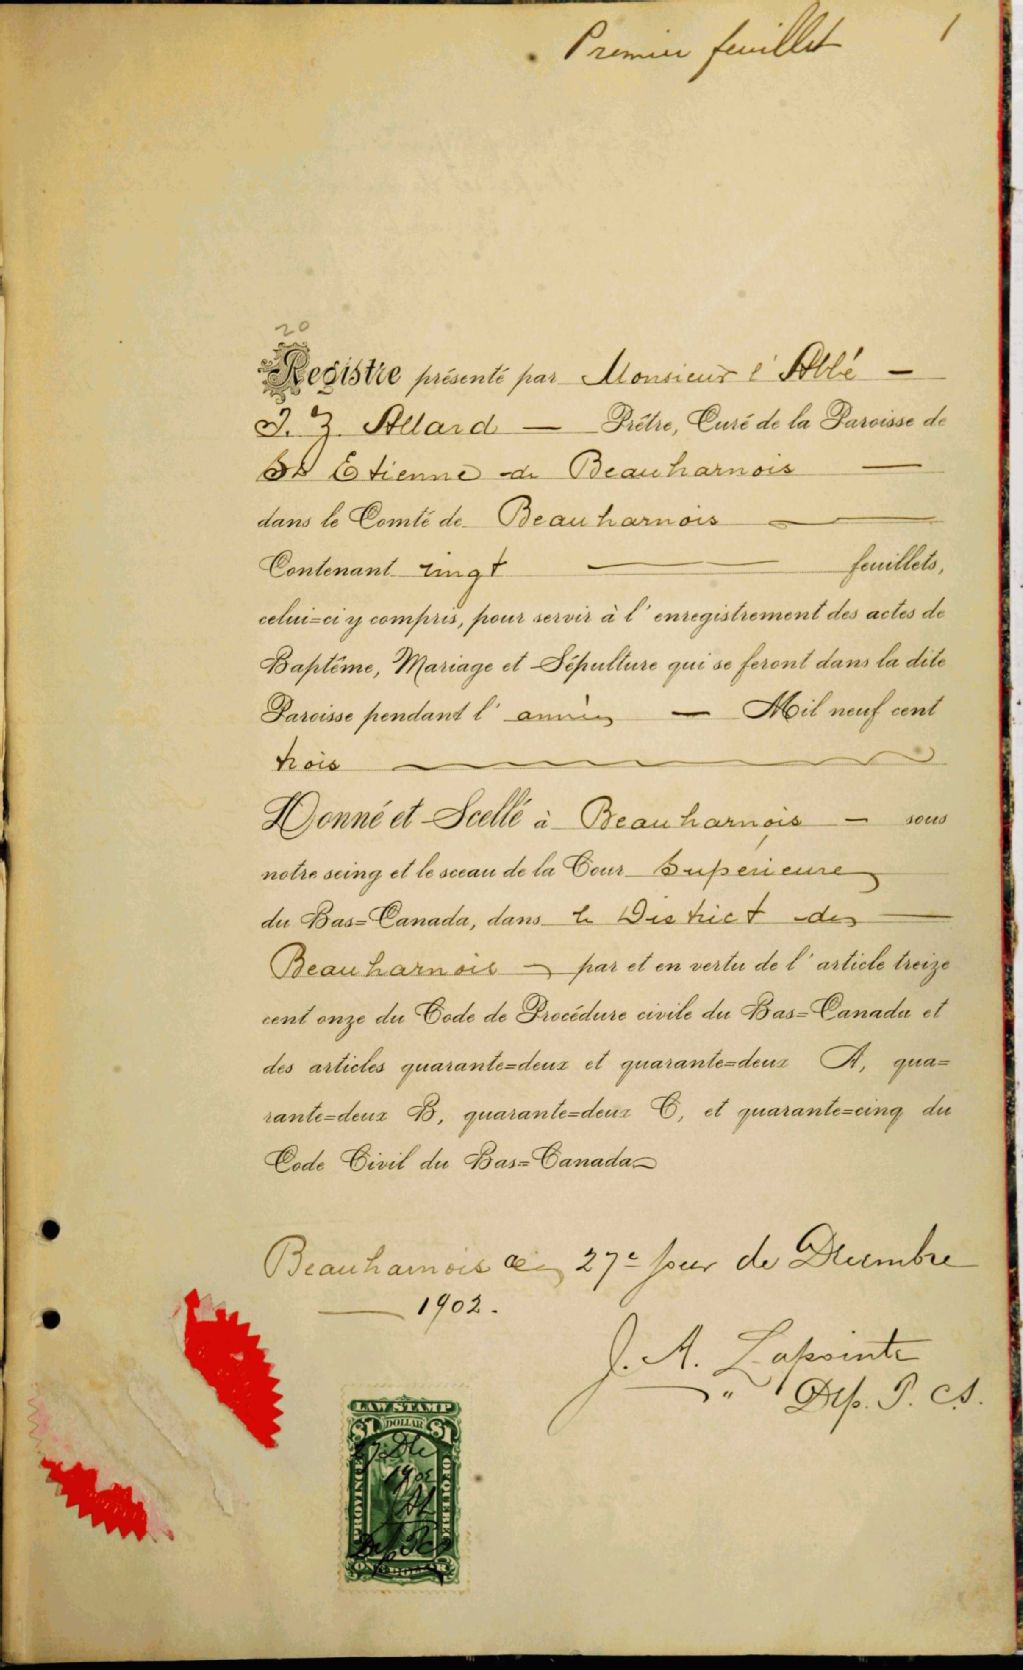 Premier feuillet
1
20
Registre présenté par Monsieur l'Abbé —
J. Z. Allard — Prêtre, Curé de la Paroisse de
St Etienne de Beauharnois —
dans le Comté de Beauharnois —
Contenant vingt — feuillets,
celui=ci y compris, pour servir à l'enregistrement des actes de
Baptême, Mariage et Sépulture qui se feront dans la dite
Paroisse pendant l'année — Mil neuf cent
trois
Donné et Scellé à Beauharnois — sous
notre seing et le sceau de la Cour Supérieure
du Bas=Canada, dans le District de —
Beauharnois — par et en vertu de l'article treize
cent onze du Code de Procédure civile du Bas=Canada et
des articles quarante=deux et quarante=deux A, qua=
rante=deux B, quarante=deux C, et quarante=cinq du
Code Civil du Bas=Canada
Beauharnois ce 27e jour de Décembre
— 1902.
J. A. Lapointe
" Dep. P. C.S.
LAW STAMP
$1 DOLLAR $1
PROVINCE OF QUEBEC
27 Dec
1902
ONE DOLLAR